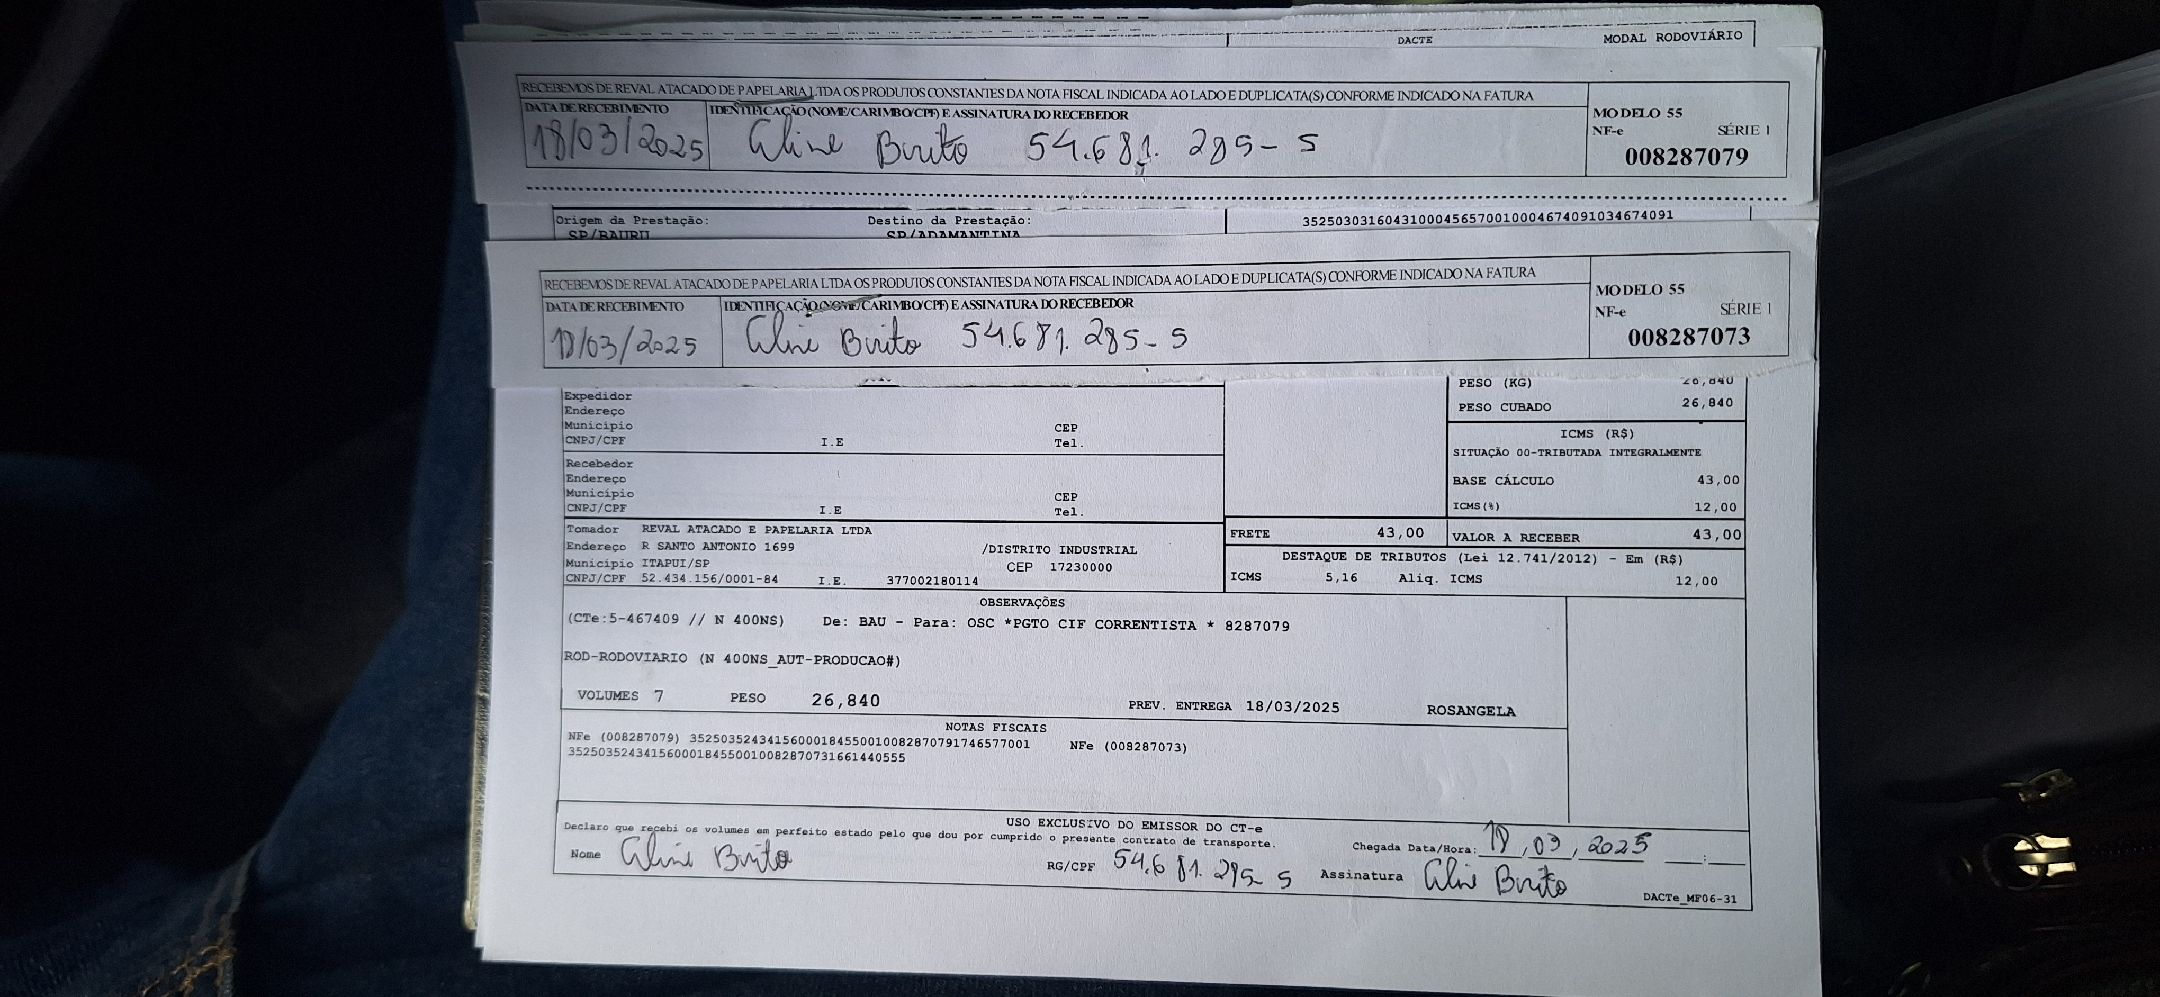 DACTE MODAL RODOVIÁRIO
RECEBEMOS DE REVAL ATACADO DE PAPELARIA LTDA OS PRODUTOS CONSTANTES DA NOTA FISCAL INDICADA AO LADO E DUPLICATA(S) CONFORME INDICADO NA FATURA
DATA DE RECEBIMENTO IDENTIFICAÇÃO (NOME/CARIMBO/CPF) E ASSINATURA DO RECEBEDOR
18/03/2025 Aline Brito 54.681.285-5
MODELO 55
NF-e SÉRIE 1
008287079
Origem da Prestação: Destino da Prestação: 35250303160431000456570010004674091034674091
SP/BAURU SP/ADAMANTINA
RECEBEMOS DE REVAL ATACADO DE PAPELARIA LTDA OS PRODUTOS CONSTANTES DA NOTA FISCAL INDICADA AO LADO E DUPLICATA(S) CONFORME INDICADO NA FATURA
DATA DE RECEBIMENTO IDENTIFICAÇÃO (NOME/CARIMBO/CPF) E ASSINATURA DO RECEBEDOR
18/03/2025 Aline Brito 54.681.285-5
MODELO 55
NF-e SÉRIE 1
008287073
Expedidor
Endereço
Município CEP
CNPJ/CPF I.E Tel.
Recebedor
Endereço
Município CEP
CNPJ/CPF I.E Tel.
PESO (KG) 26,840
PESO CUBADO 26,840
ICMS (R$)
SITUAÇÃO 00-TRIBUTADA INTEGRALMENTE
BASE CÁLCULO 43,00
ICMS(%) 12,00
Tomador REVAL ATACADO E PAPELARIA LTDA
Endereço R SANTO ANTONIO 1699 /DISTRITO INDUSTRIAL
Município ITAPUI/SP CEP 17230000
CNPJ/CPF 52.434.156/0001-84 I.E. 377002180114
FRETE 43,00 VALOR A RECEBER 43,00
DESTAQUE DE TRIBUTOS (Lei 12.741/2012) - Em (R$)
ICMS 5,16 Aliq. ICMS 12,00
OBSERVAÇÕES
(CTe:5-467409 // N 400NS) De: BAU - Para: OSC *PGTO CIF CORRENTISTA * 8287079
ROD-RODOVIARIO (N 400NS_AUT-PRODUCAO#)
VOLUMES 7 PESO 26,840 PREV. ENTREGA 18/03/2025 ROSANGELA
NOTAS FISCAIS
NFe (008287079) 35250352434156000184550010082870791746577001 NFe (008287073)
35250352434156000184550010082870731661440555
USO EXCLUSIVO DO EMISSOR DO CT-e
Declaro que recebi os volumes em perfeito estado pelo que dou por cumprido o presente contrato de transporte.
Nome Aline Brito RG/CPF 54.681.285-5 Chegada Data/Hora: 18,03,2025 __:__
Assinatura Aline Brito
DACTe_MF06-31